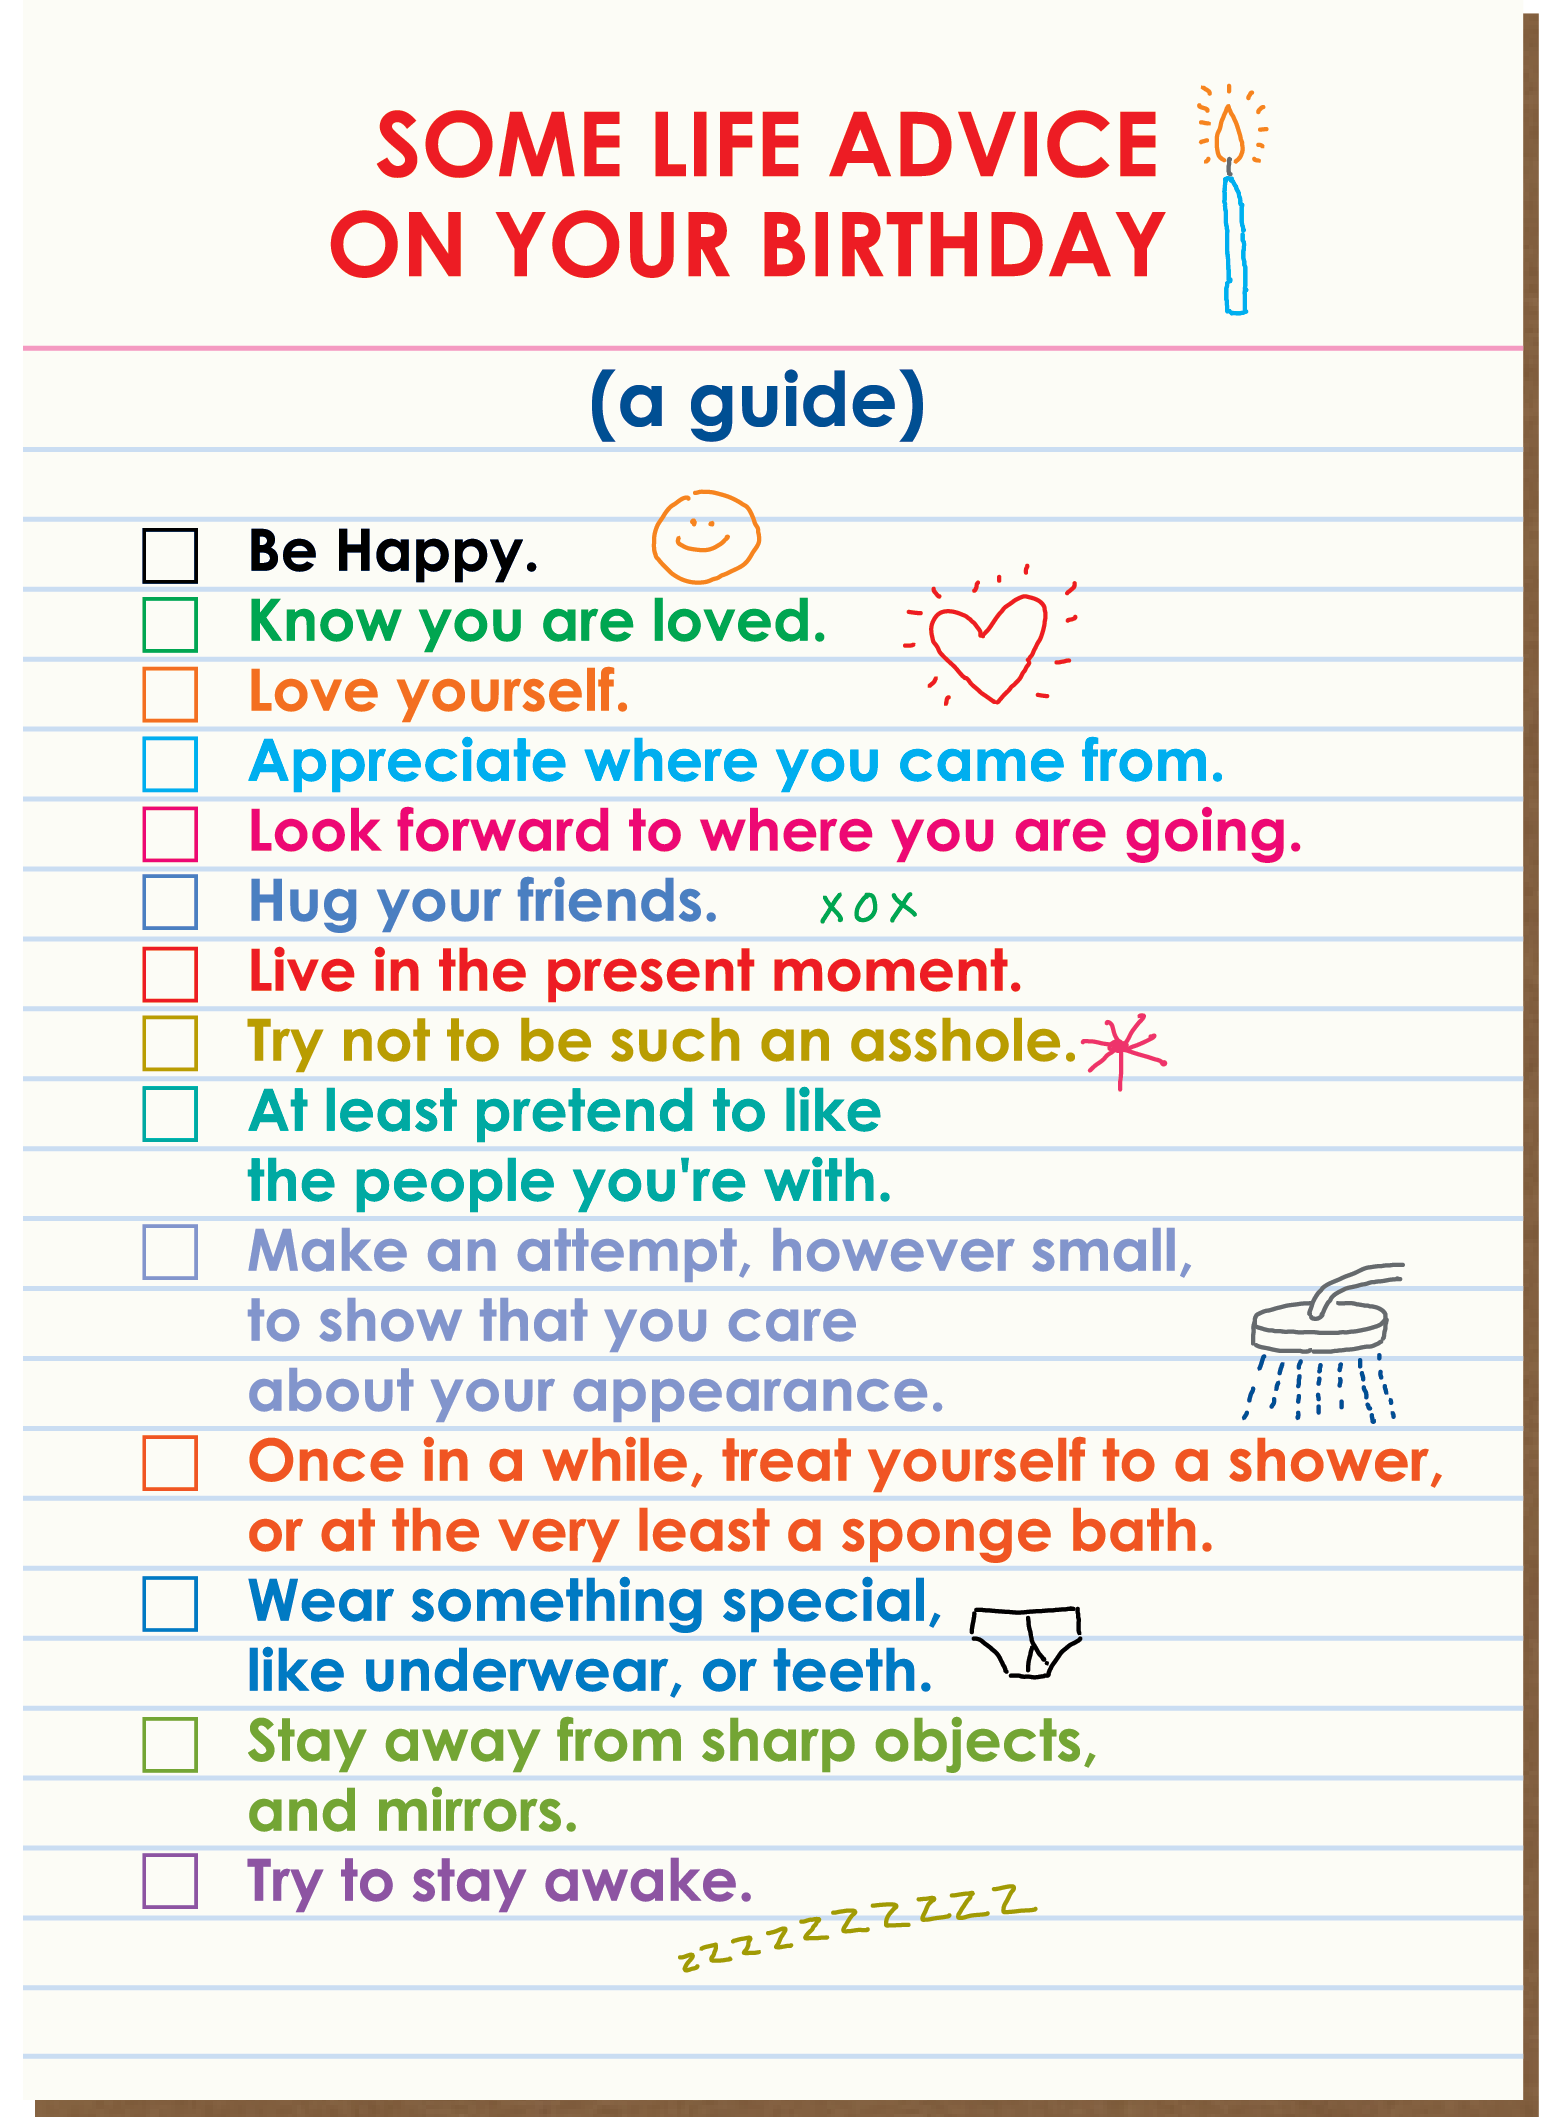 SOME LIFE ADVICE
ON YOUR BIRTHDAY
(a guide)
Be Happy.
Know you are loved.
Love yourself.
Appreciate where you came from.
Look forward to where you are going.
Hug your friends. xox
Live in the present moment.
Try not to be such an asshole.
At least pretend to like
the people you're with.
Make an attempt, however small,
to show that you care
about your appearance.
Once in a while, treat yourself to a shower,
or at the very least a sponge bath.
Wear something special,
like underwear, or teeth.
Stay away from sharp objects,
and mirrors.
Try to stay awake.
zzzzzzzzzz